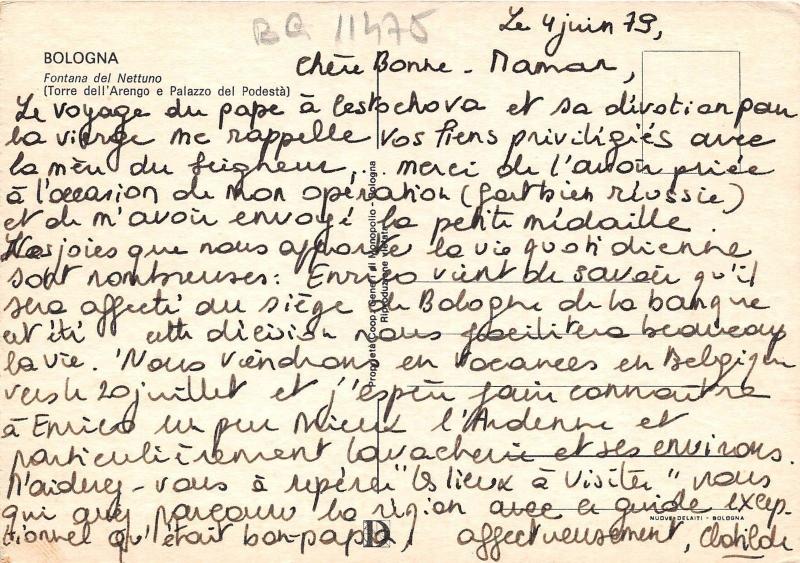 BQ 11475
Le 4 juin 79,
BOLOGNA
Fontana del Nettuno
(Torre dell'Arengo e Palazzo del Podestà)
Chère Bonne-Maman,
Le voyage du pape à Cestochova et sa dévotion pour
la vierge me rappelle vos liens privilégiés avec
la mère du Seigneur,... merci de l'avoir priée
à l'occasion de mon opération (fort bien réussie)
et de m'avoir envoyé la petite médaille.
Les joies que nous apporte la vie quotidienne
sont nombreuses: Enrico vient de savoir qu'il
sera affecté au siège de Bologne de la banque
et cette décision nous facilitera beaucoup
la vie. Nous viendrons en vacances en Belgique
vers le 20 juillet et j'espère faire connaître
à Enrico un peu mieux l'Ardenne et
particulièrement Lavacherie et ses environs.
M'aiderez-vous à repérer "les lieux à visiter" nous
qui avez parcouru la région avec ce guide excep-
tionnel qu'était bon-papa,
affectueusement, Clotilde
Proprietà Coop. Gener. di Monopolio - Bologna
Riproduzione vietata
D
NUOVE DELAITI - BOLOGNA